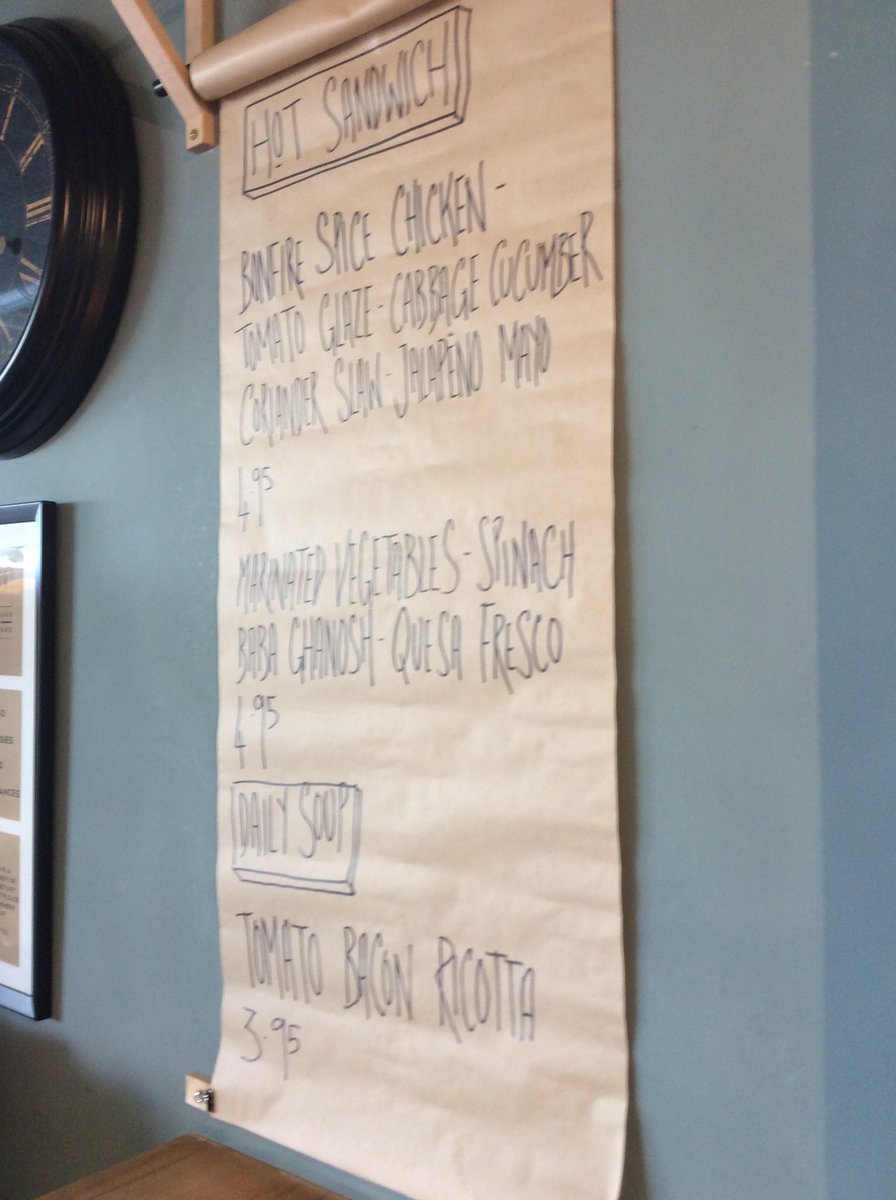 HOT SANDWICH
BONFIRE SPICE CHICKEN -
TOMATO GLAZE - CABBAGE CUCUMBER
CORIANDER SLAW - JALAPEÑO MAYO
4.95
MARINATED VEGETABLES - SPINACH
BABA GHANOSH - QUESA FRESCO
4.95
DAILY SOUP
TOMATO BACON RICOTTA
3.95